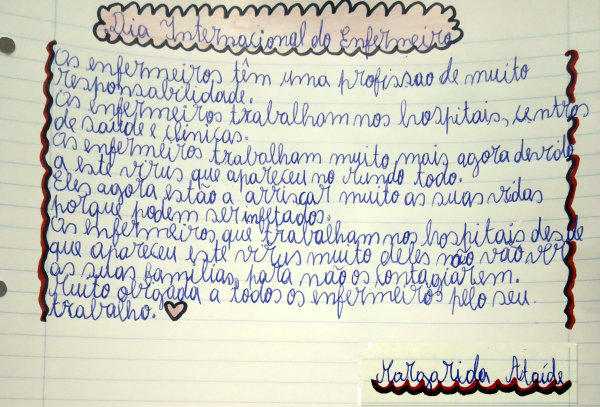 Dia Internacional do Enfermeiro
Os enfermeiros têm uma profissao de muito
responsabilidade.
Os enfermeiros trabalham nos hospitais, centros
de saúde e clinicas.
Os enfermeiros trabalham muito mais agora devido
a este virus que apareceu no mundo todo.
Eles agora estão a arriscar muito as suas vidas
porque podem ser infetados.
Os enfermeiros que trabalham nos hospitais desde
que apareceu este virus muito deles não vão ver
as suas familias, para não os contagiarem.
Muito obrigada a todos os enfermeiros pelo seu.
trabalho.
Margarida Ataíde